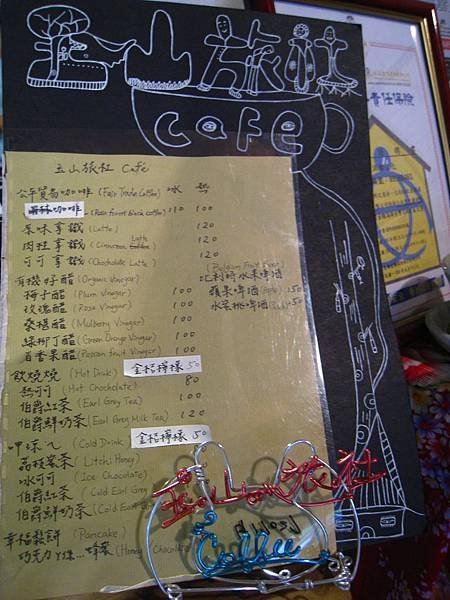 玉山旅社
cafe
玉山旅社 Café
公平貿易咖啡 (Fair Trade Coffee) 冰 熱
森林咖啡 (Rain forest black coffee) 110 100
原味拿鐵 (Latte) 120
肉桂拿鐵 (Cinnamon Latte) 120
可可拿鐵 (Chocholate Latte) 120
有機好醋 (Organic Vinegar)
梅子醋 (Plum Vinegar) 100
玫瑰醋 (Rose Vinegar) 100
桑椹醋 (Mulberry Vinegar) 100
綠柳丁醋 (Green Orange Vinegar) 100
百香果醋 (Passion fruit Vinegar) 100
(Belgian Fruit Beer)
比利時水果啤酒
蘋果啤酒 (Apple) 150
水蜜桃啤酒 150
飲燒燒 (Hot Drink) 金桔檸檬 50
熱可可 (Hot Chocholate) 80
伯爵紅茶 (Earl Grey Tea) 100
伯爵鮮奶茶 (Earl Grey Milk Tea) 120
呷涼ㄟ (Cold Drink) 金桔檸檬 50
荔枝蜜茶 (Litchi Honey)
冰可可 (Ice Chocolate)
伯爵紅茶 (Cold Earl Grey
伯爵鮮奶茶 (Cold Earl
幸福鬆餅 (Pancake)
巧克力 蜂蜜 (Honey Chocolate
玉山旅社
Coffee
責任保險